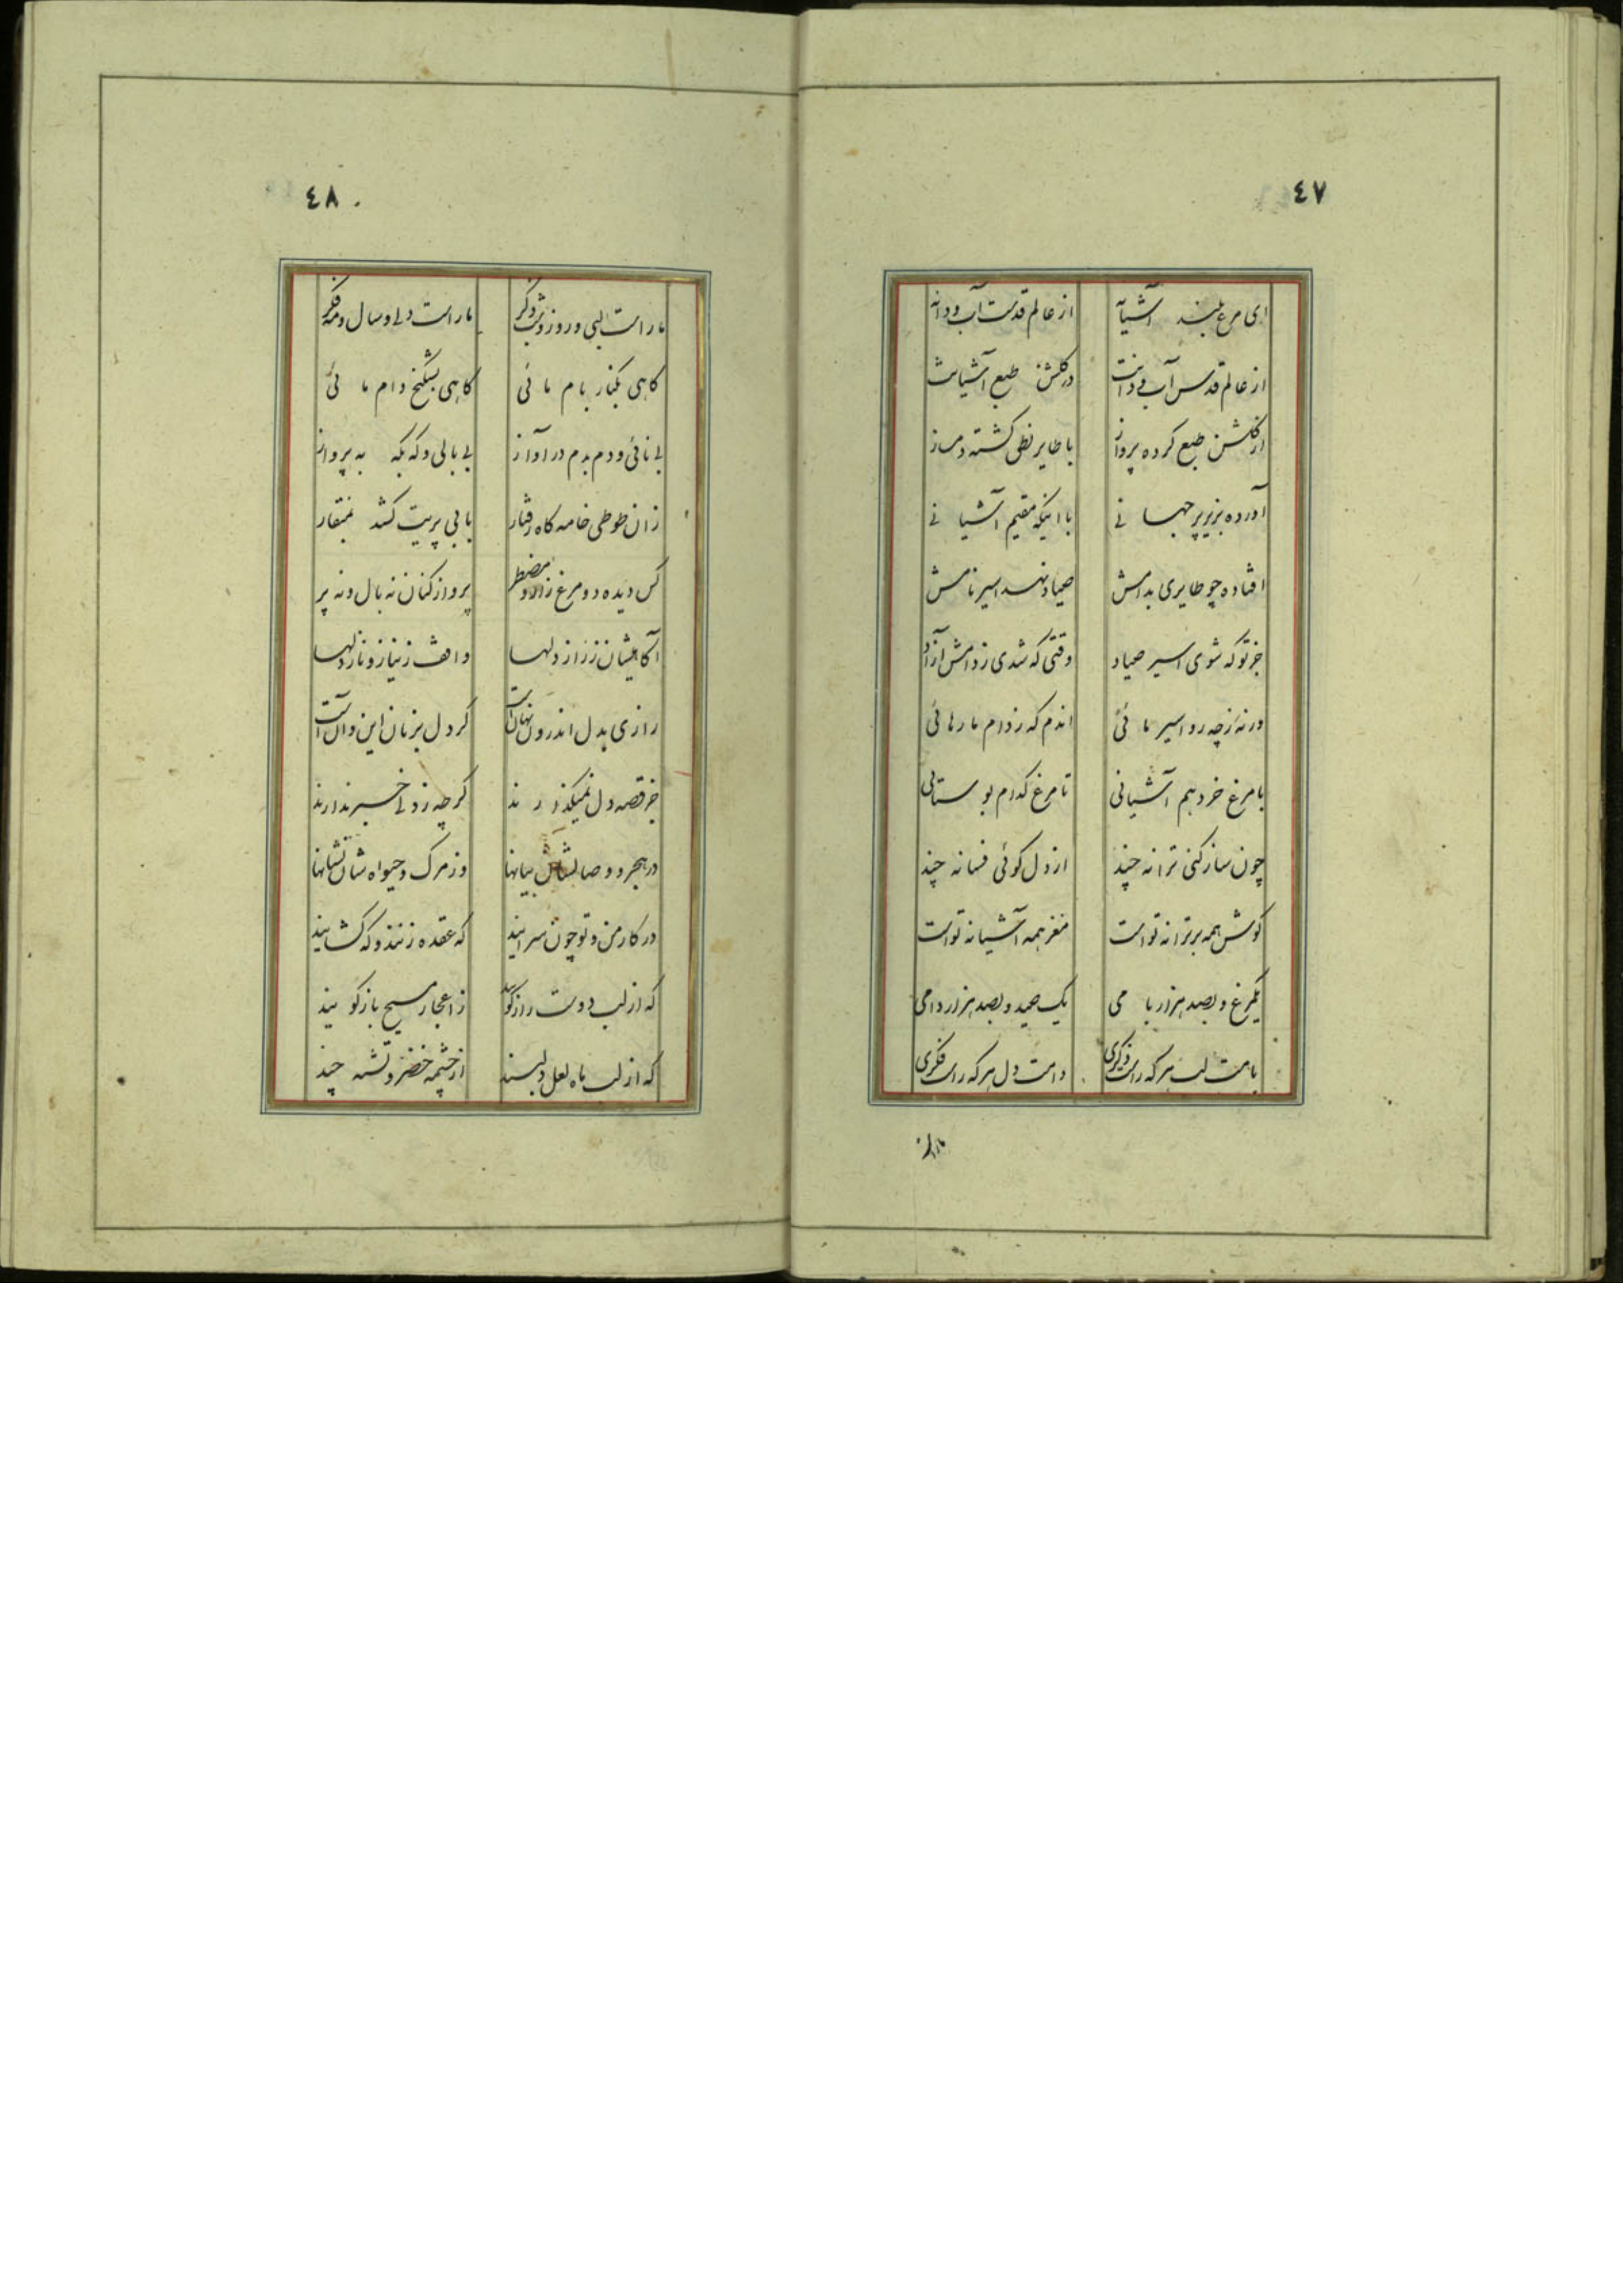 ٤٧
ای مرغ بلند آشیانه از عالم قدست آب و دانه
از عالم قدس آب و دانت در گلشن طبع آشیانت
از گلشن طبع کرده پرواز با طایر نطق گشته دمساز
آورده بزیر پر جهانی با اینکه مقیم آشیانی
افتاده چو طایری بدامش صیاد نهد اسیر نامش
جز تو که شوی اسیر صیاد وقتی که شدی ز دامش آزاد
ورنه ز چه رو اسیر مائی اندم که ز دام ما رهائی
با مرغ خرد هم آشیانی تا مرغ کدام بوستانی
چون ساز کنی ترانه چند از دل گوئی فسانه چند
گوش همه بر ترانه تو است مغز همه آشیانه تو است
یکمرغ و بصد هزار بامی یک صید و بصد هزار دامی
بامت لب هر که راست ذکری دامت دل هر که راست فکری
ما را
٤٨
ما راست لبی و روز و شب ذکر ما راست دلی و سال و مه فکر
گاهی بکنار بام مائی گاهی بشکنج دام مائی
بی نائی و دم بدم در آواز بی بالی و گه بگه به پرواز
زان طوطی خامه گاه رفتار با بی پریت کشد بمنقار
کس دیده دو مرغ زار و مضطر پرواز کنان نه بال و نه پر
آگاهیشان ز راز دلها واقف ز نیاز و ناز دلها
رازی بدل اندرون نهانست گر دل بزبان این و آنست
جز قصه دل نمیگذارند گرچه ز دلی خبر ندارند
در هجر و وصالشان بیانها وز مرگ و حیواه شان نشانها
در کار من و تو چون سرایند گه عقده زنند و گه گشایند
گه از لب دوست راز گویند ز اعجاز مسیح باز گویند
گه از لب ماه لعل دلبند از چشمه خضر و تشنه چند